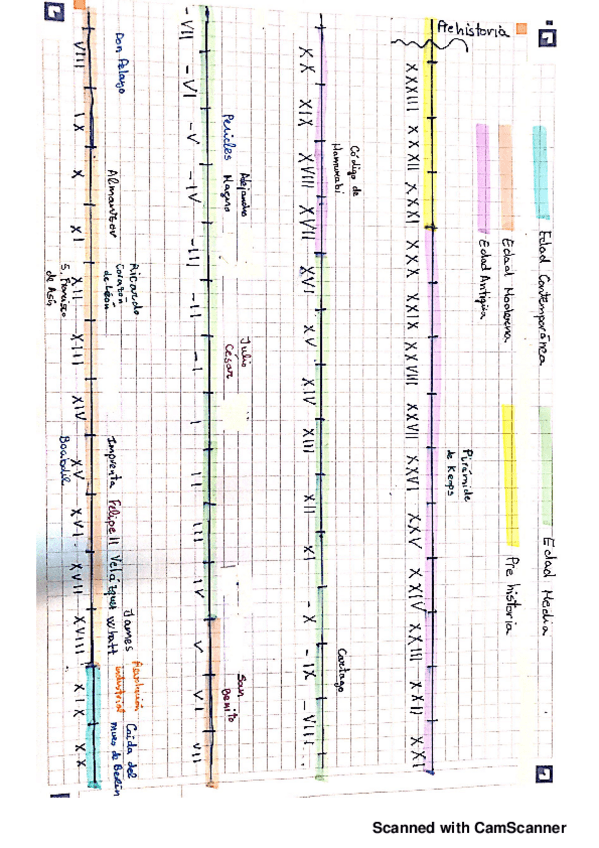 Edad Contemporánea
Edad Media
Edad Moderna
Pre historia
Edad Antigua
Prehistoria
Pirámide
de Keops
XXXIII XXXII XXXI XXX XXIX XXVIII XXVII XXVI XXV XXIV XXIII XXII XXI
Código de
Hamurabi
Cartago
XX XIX XVIII XVII XVI XV XIV XIII XII XI - X - IX - VIII
Pericles
Alejandro
Magno
Julio
César
San
Benito
- VII - VI - V - IV - III - II - I I II III IV V VI VII
Don Pelayo
Almanzor
Ricardo
Corazón
de León
Imprenta
Felipe II
Velázquez
James
Whatt
Revolución
industrial
Caída del
muro de Berlín
VIII IX X XI XII XIII XIV XV XVI XVII XVIII XIX XX
S. Francisco
de Asís
Boabdil
Scanned with CamScanner